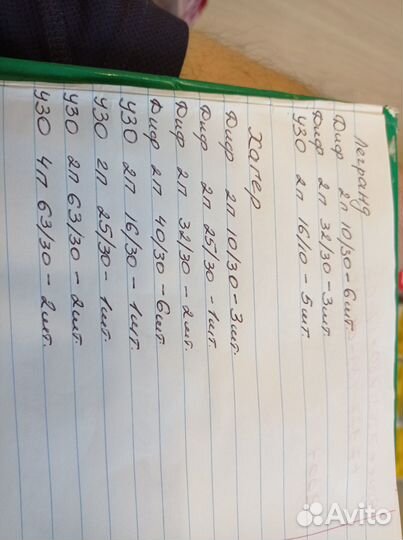 Легранд
Диф 2п 10/30 - 6шт.
Диф 2п 32/30 - 3шт.
УЗО 2п 16/10 - 5шт.
Хагер
Диф 2п 10/30 - 3шт.
Диф 2п 25/30 - 1шт.
Диф 2п 32/30 - 2шт.
Диф 2п 40/30 - 6шт
УЗО 2п 16/30 - 1шт
УЗО 2п 25/30 - 1шт.
УЗО 2п 63/30 - 2шт.
УЗО 4п 63/30 - 2шт.
Avito